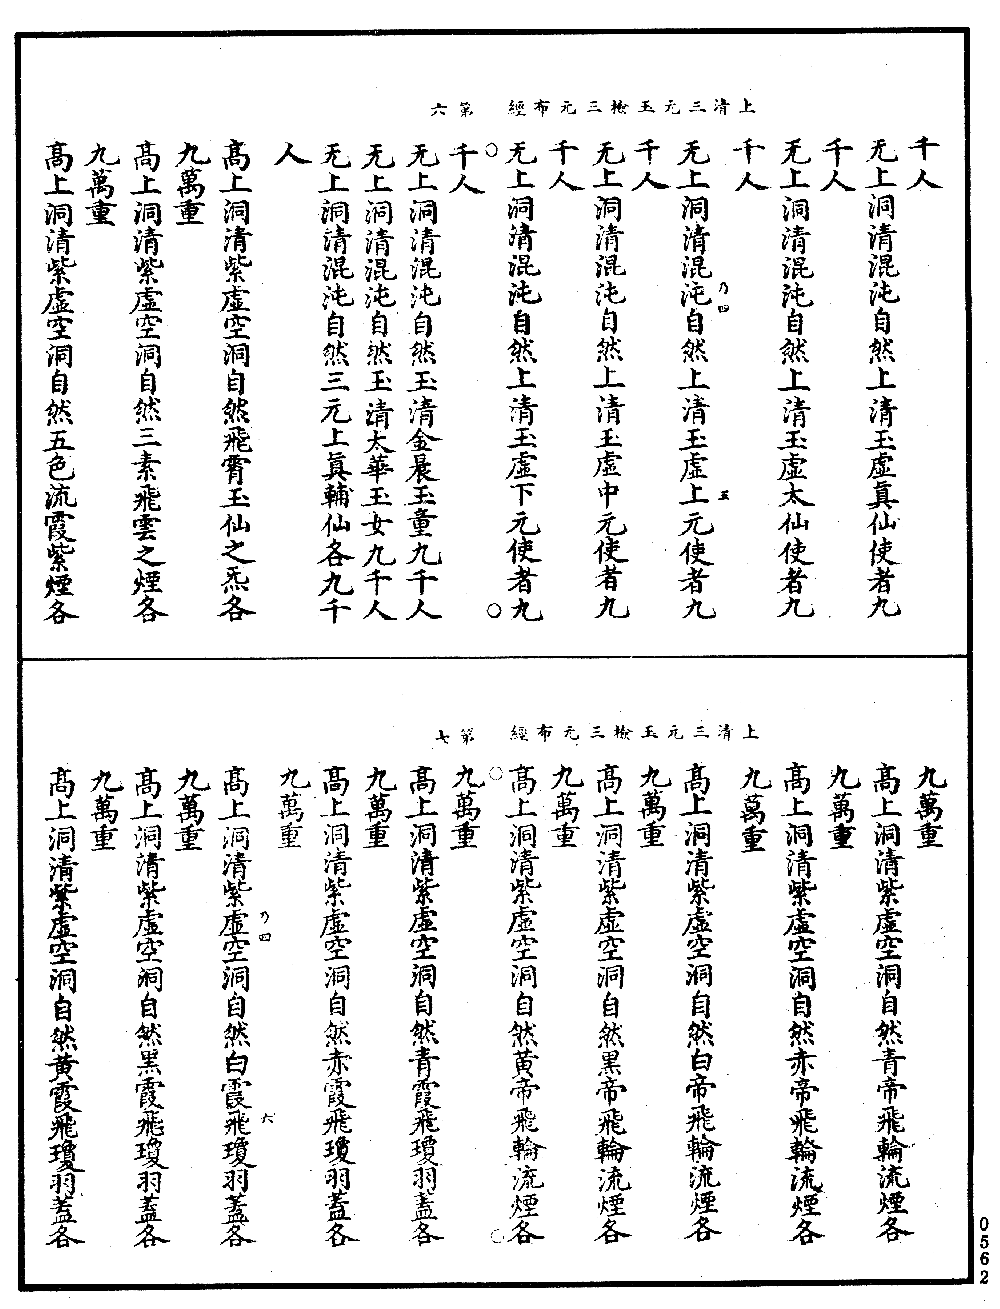 上清三元玉檢三元布經　第六
千人
无上洞清混沌自然上清玉虛真仙使者九
千人
无上洞清混沌自然上清玉虛太仙使者九
千人
无上洞清混沌自然上清玉虛上元使者九
乃四　五
千人
无上洞清混沌自然上清玉虛中元使者九
千人
无上洞清混沌自然上清玉虛下元使者九
千人
无上洞清混沌自然玉清金晨玉童九千人
无上洞清混沌自然玉清太華玉女九千人
无上洞清混沌自然三元上真輔仙各九千
人
髙上洞清紫虛空洞自然飛霄玉仙之炁各
九萬重
髙上洞清紫虛空洞自然三素飛雲之煙各
九萬重
髙上洞清紫虛空洞自然五色流霞紫煙各
上清三元玉檢三元布經　第七
九萬重
髙上洞清紫虛空洞自然青帝飛輪流煙各
九萬重
髙上洞清紫虛空洞自然赤帝飛輪流煙各
九萬重
髙上洞清紫虛空洞自然白帝飛輪流煙各
九萬重
髙上洞清紫虛空洞自然黑帝飛輪流煙各
九萬重
髙上洞清紫虛空洞自然黃帝飛輪流煙各
九萬重
髙上洞清紫虛空洞自然青霞飛瓊羽蓋各
九萬重
髙上洞清紫虛空洞自然赤霞飛瓊羽蓋各
九萬重
乃四　六
髙上洞清紫虛空洞自然白霞飛瓊羽蓋各
九萬重
髙上洞清紫虛空洞自然黑霞飛瓊羽蓋各
九萬重
髙上洞清紫虛空洞自然黃霞飛瓊羽蓋各
0562